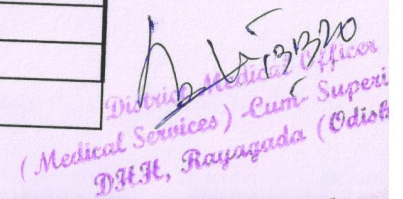 13/3/20
District Medical Officer
(Medical Services)-Cum-Superi
DHH, Rayagada (Odish